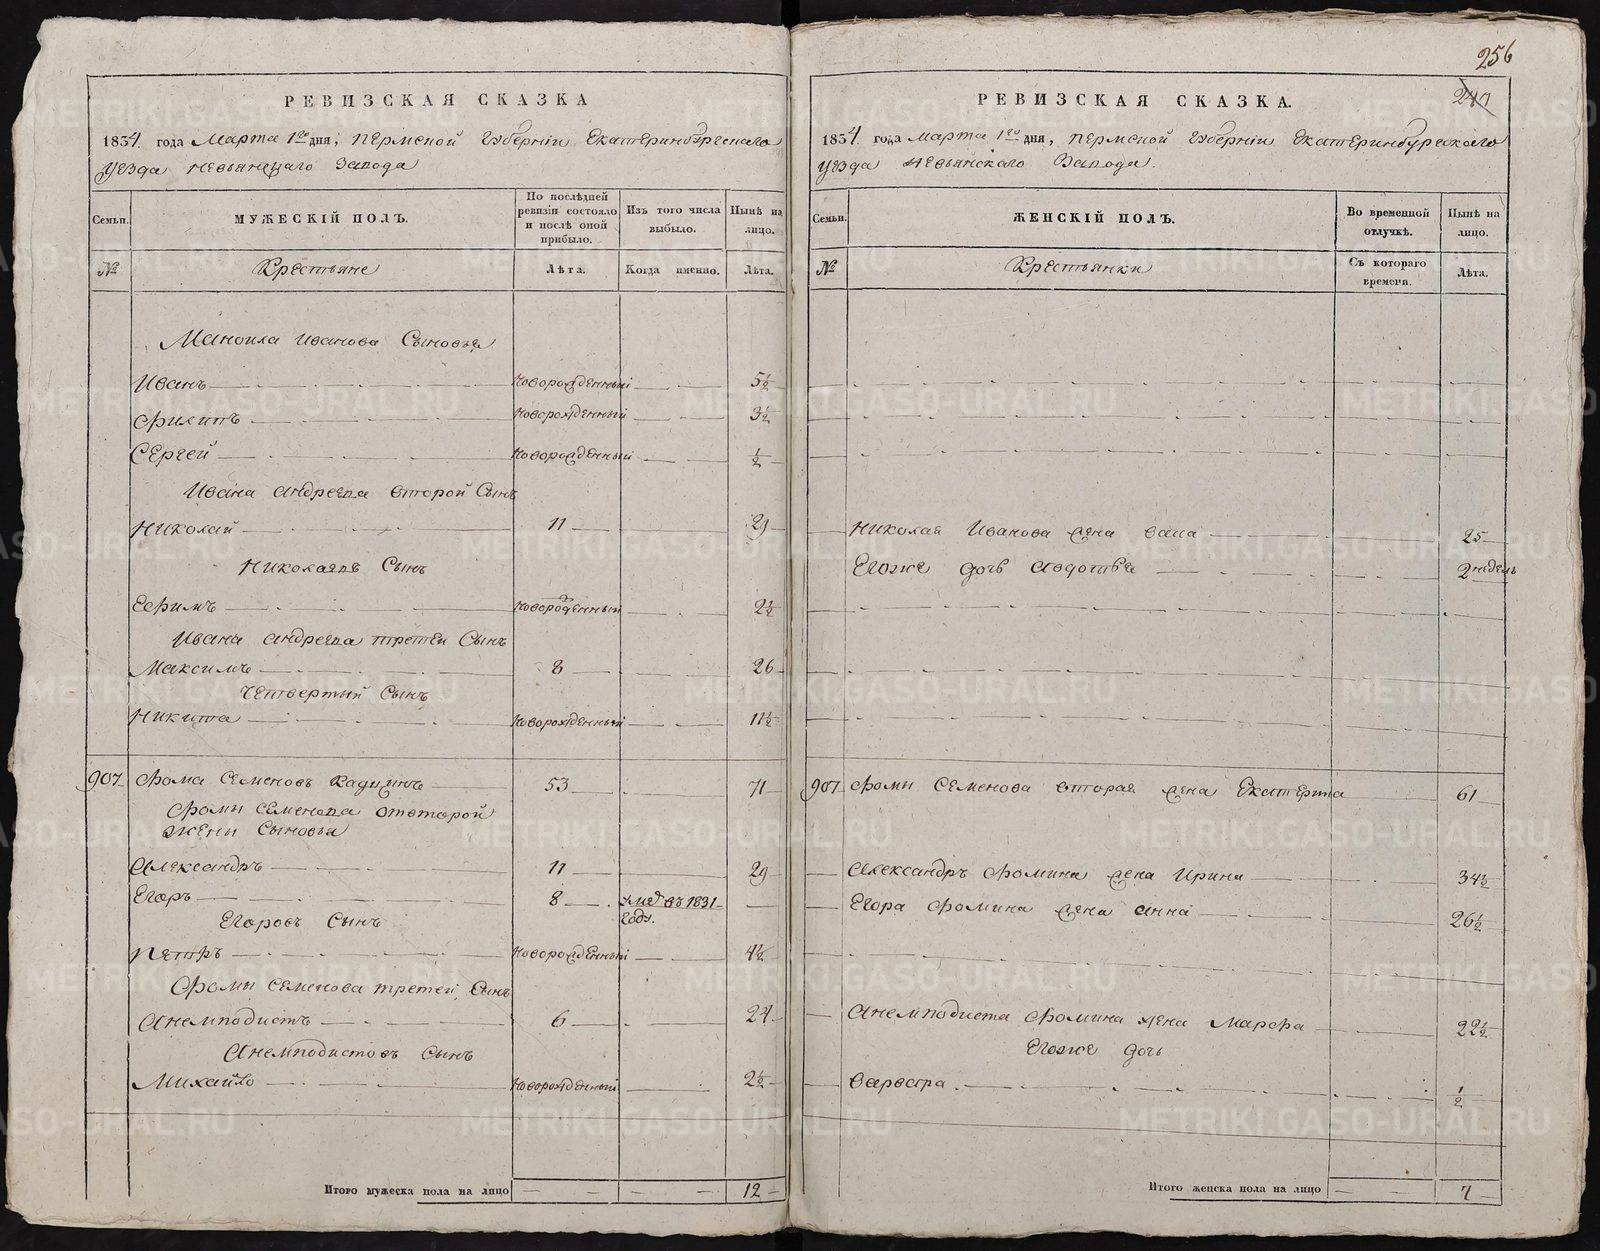 256
247
РЕВИЗСКАЯ СКАЗКА
1834 года Марта 1го дня, Пермской Губерніи Екатеринбургскаго
уезда Невьянскаго Завода
Семьи.
МУЖЕСКІЙ ПОЛЪ.
По послѣдней ревизіи состояло и послѣ оной прибыло.
Изъ того числа выбыло.
Нынѣ на лицо.
№
Крестьяне
Лѣта.
Когда именно.
Лѣта.
Маноила Иванова Сыновья
Иванъ новорожденный 5½
Филипъ новорожденный 3½
Сергей новорожденный ½
Ивана Андреева второй Сынъ
Николай 11 29
Николаевъ Сынъ
Ефимъ новорожденный 2½
Ивана Андреева третей Сынъ
Максимъ 8 26
Четвертый Сынъ
Никита новорожденный 11½
907 Фома Семеновъ 53 71
Фомы Семенова отвторой
жены Сыновья
Александръ 11 29
Егоръ 8 въ 1831
годъ.
Егоровъ Сынъ
Петръ новорожденный 4½
Фомы Семенова третей Сынъ
Анемподистъ 6 24
Анемподистовъ Сынъ
Михайло новорожденный 2½
Итого мужеска пола на лицо 12
РЕВИЗСКАЯ СКАЗКА.
1834 года Марта 1го дня, Пермской Губерніи Екатеринбургскаго
уезда Невьянскаго Завода.
Семьи.
ЖЕНСКІЙ ПОЛЪ.
Во временной отлучкѣ.
Нынѣ на лицо.
№
Крестьянки
Съ котораго времени.
Лѣта.
Николая Иванова жена 25
Егоже дочь Авдотья 2 недель
907 Фомы Семенова вторая жена Екатерина 61
Александръ Фомина жена Ирина 34½
Егора Фомина жена Анна 26½
Анемподиста Фомина жена Марфа 22½
Егоже дочь
Варвара ½
Итого женска пола на лицо 7
METRIKI.GASO-URAL.RU